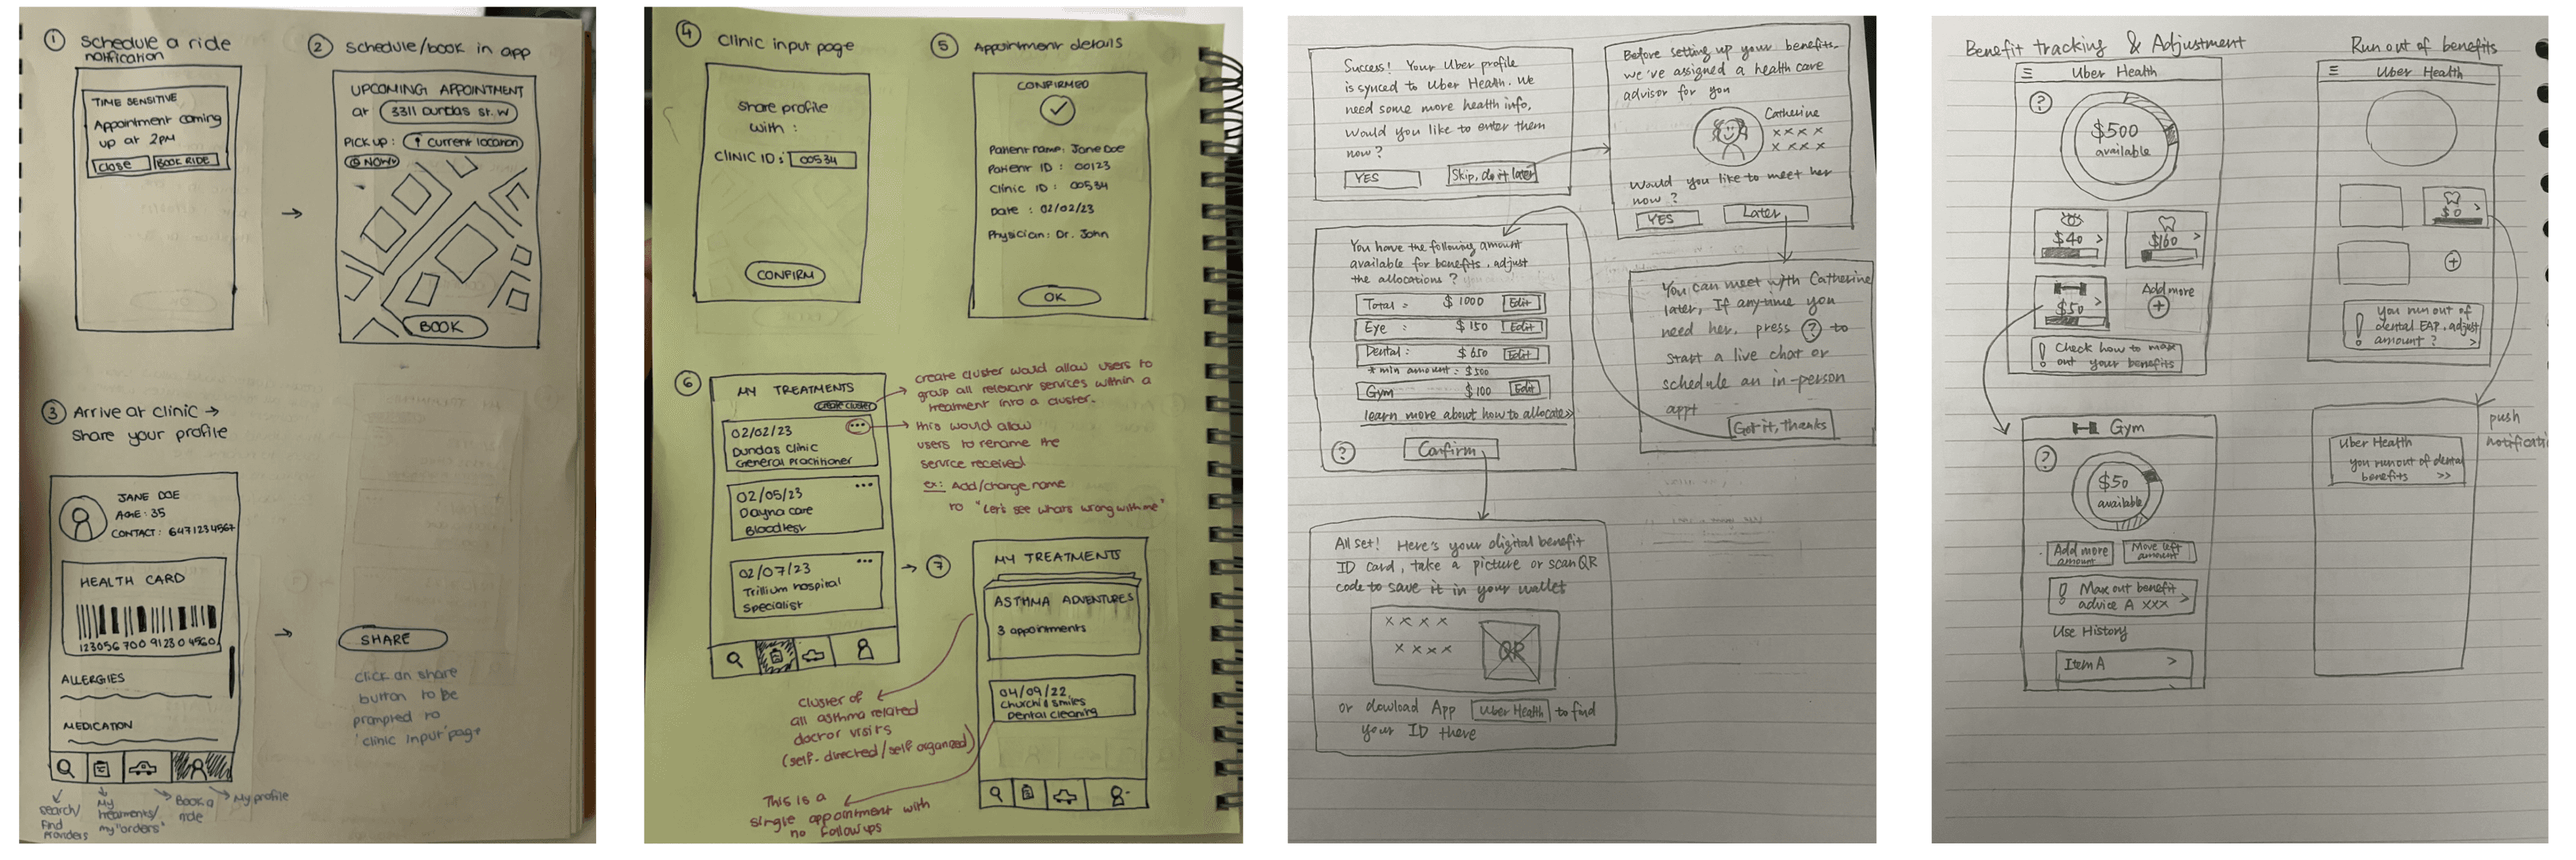 ① Schedule a ride
notification
TIME SENSITIVE
Appointment coming
up at 2pm
Close
BOOK RIDE
② Schedule/book in app
UPCOMING APPOINTMENT
at 3311 Dundas st. W
PICK UP: Current location
NOW
BOOK
③ Arrive at clinic →
share your profile
JANE DOE
AGE: 35
CONTACT: 6471234567
HEALTH CARD
123056 700 9123 0 4560
ALLERGIES
MEDICATION
search/
find
providers
My
treatments/
my "orders"
Book a
ride
My profile
SHARE
click on share
button to be
prompted to
'clinic input' page
④ Clinic input page
Share profile
with:
CLINIC ID: 00534
CONFIRM
⑤ Appointment details
CONFIRMED
Patient name: Jane Doe
Patient ID: 00123
Clinic ID: 00534
Date: 02/02/23
Physician: Dr. John
OK
⑥
MY TREATMENTS
create cluster
02/02/23
Dundas Clinic
General Practitioner
02/05/23
Dayna care
Bloodtest
02/07/23
Trillium hospital
Specialist
create cluster would allow users to
group all relevant services within a
treatment into a cluster.
this would allow
users to rename the
service received
ex: Add/change name
to "Let's see whats wrong with me"
⑦
MY TREATMENTS
ASTHMA ADVENTURES
3 appointments
04/09/22
Churchid smiles
Dental cleaning
cluster of
all asthma related
doctor visits
(self-directed/self organized)
This is a
single appointment with
no followups
Success! Your Uber profile
is synced to Uber Health. We
need some more health info,
would you like to enter them
now?
YES
Skip, do it later
Before setting up your benefits,
we've assigned a health care
advisor for you
Catherine
xxxx
xxxx
xxxx
Would you like to meet her
now?
YES
Later
You have the following amount
available for benefits. adjust
the allocations?
Total: $1000 Edit
Eye: $150 Edit
Dental: $650 Edit
* min amount: $500
Gym $100 Edit
learn more about how to allocate>>
?
Confirm
You can meet with Catherine
later, If anytime you
need her, press ? to
start a live chat or
schedule an in-person
appt
Got it, thanks
All set! Here's your digital benefit
ID card, take a picture or scan QR
code to save it in your wallet
xxxx
xxxx
QR
or dowload App Uber Health to find
your ID there
Benefit tracking & Adjustment
Uber Health
?
$500
available
$40 >
$160 >
$50 >
Add more
+
! Check how to max
out your benefits
Gym
?
$50
available
Add more
amount
Move left
amount
! Max out benefit
advice A xxx >
Use History
Item A >
Run out of benefits
Uber Health
$0 >
+
! You run out of
dental EAP. adjust
amount? >
push
Uber Health
you run out of dental
benefits >>